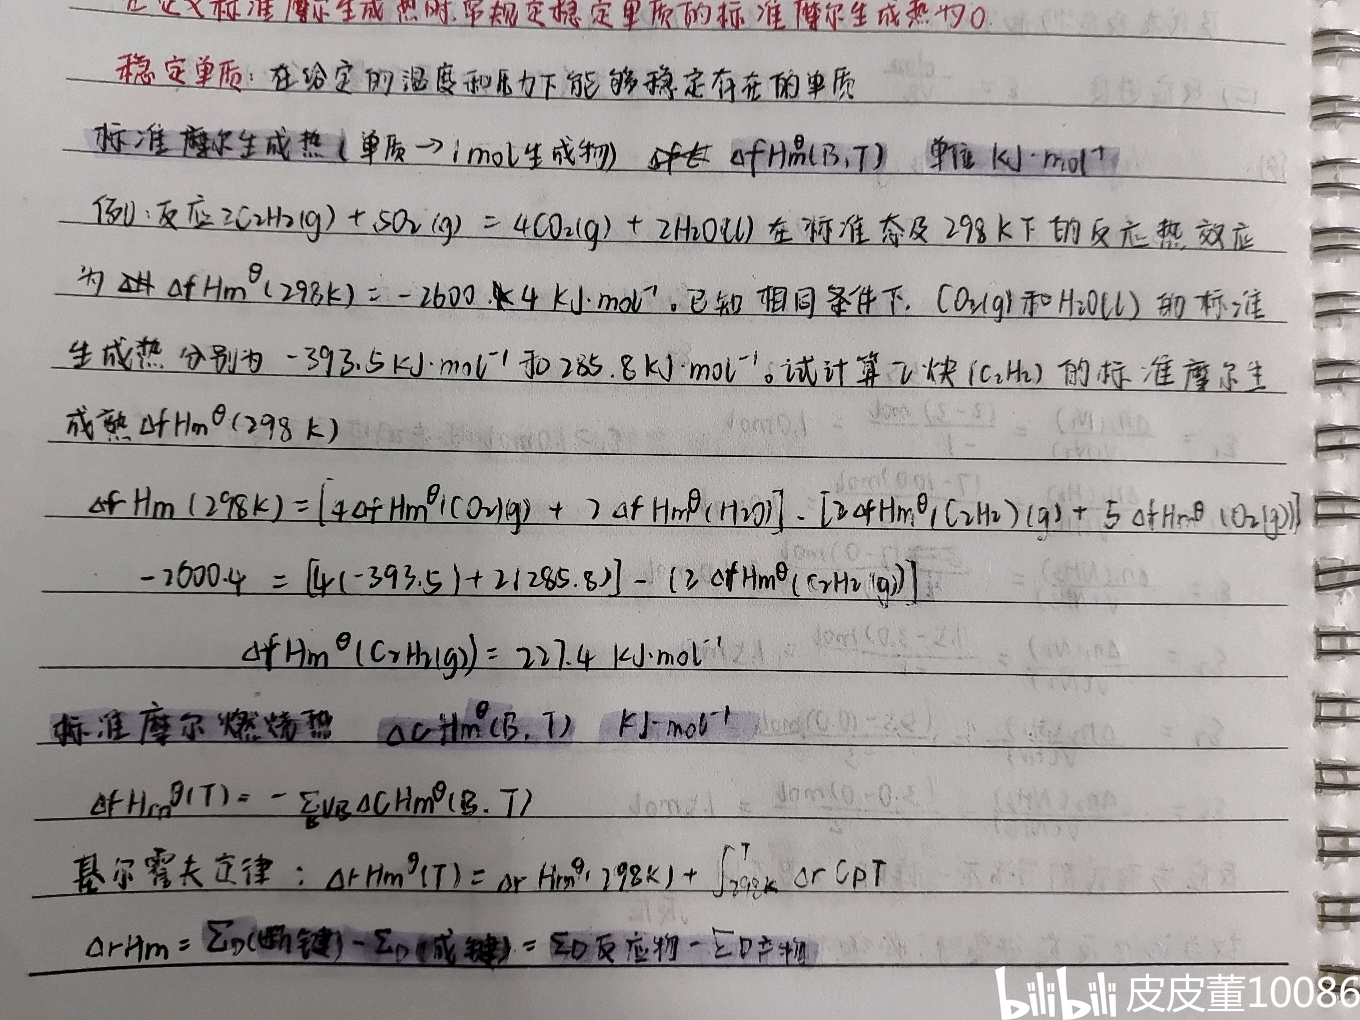 在定义标准摩尔生成热时,常规定稳定单质的标准摩尔生成热为0.
稳定单质:在给定的温度和压力下能够稳定存在的单质
标准摩尔生成热(单质→1mol生成物) ΔfHmθ(B,T) 单位 KJ·mol⁻¹
例1:反应2C2H2(g)+5O2(g)=4CO2(g)+2H2O(l)在标准态及298K下的反应热效应
为 ΔfHmθ(298K)=-2600.4 KJ·mol⁻¹。已知相同条件下,CO2(g)和H2O(l)的标准
生成热分别为-393.5KJ·mol⁻¹和285.8KJ·mol⁻¹。试计算乙炔(C2H2)的标准摩尔生
成热ΔfHmθ(298K)
ΔfHm(298K)=[4ΔfHmθ(CO2)(g)+2ΔfHmθ(H2O)]-[2ΔfHmθ(C2H2)(g)+5ΔfHmθ(O2(g))]
-2600.4=[4(-393.5)+2(285.8)]-(2ΔfHmθ(C2H2(g))]
ΔfHmθ(C2H2(g))=227.4 KJ·mol⁻¹
标准摩尔燃烧热 ΔCHmθ(B,T) KJ·mol⁻¹
ΔfHmθ(T)=-ΣBVBΔCHmθ(B.T)
基尔霍夫定律:ΔrHmθ(T)=ΔrHmθ(298K)+∫298KT ΔrCpT
ΔrHm=ΣD(断键)-ΣD(成键)=ΣD反应物-ΣD产物
bilibili 皮皮董10086